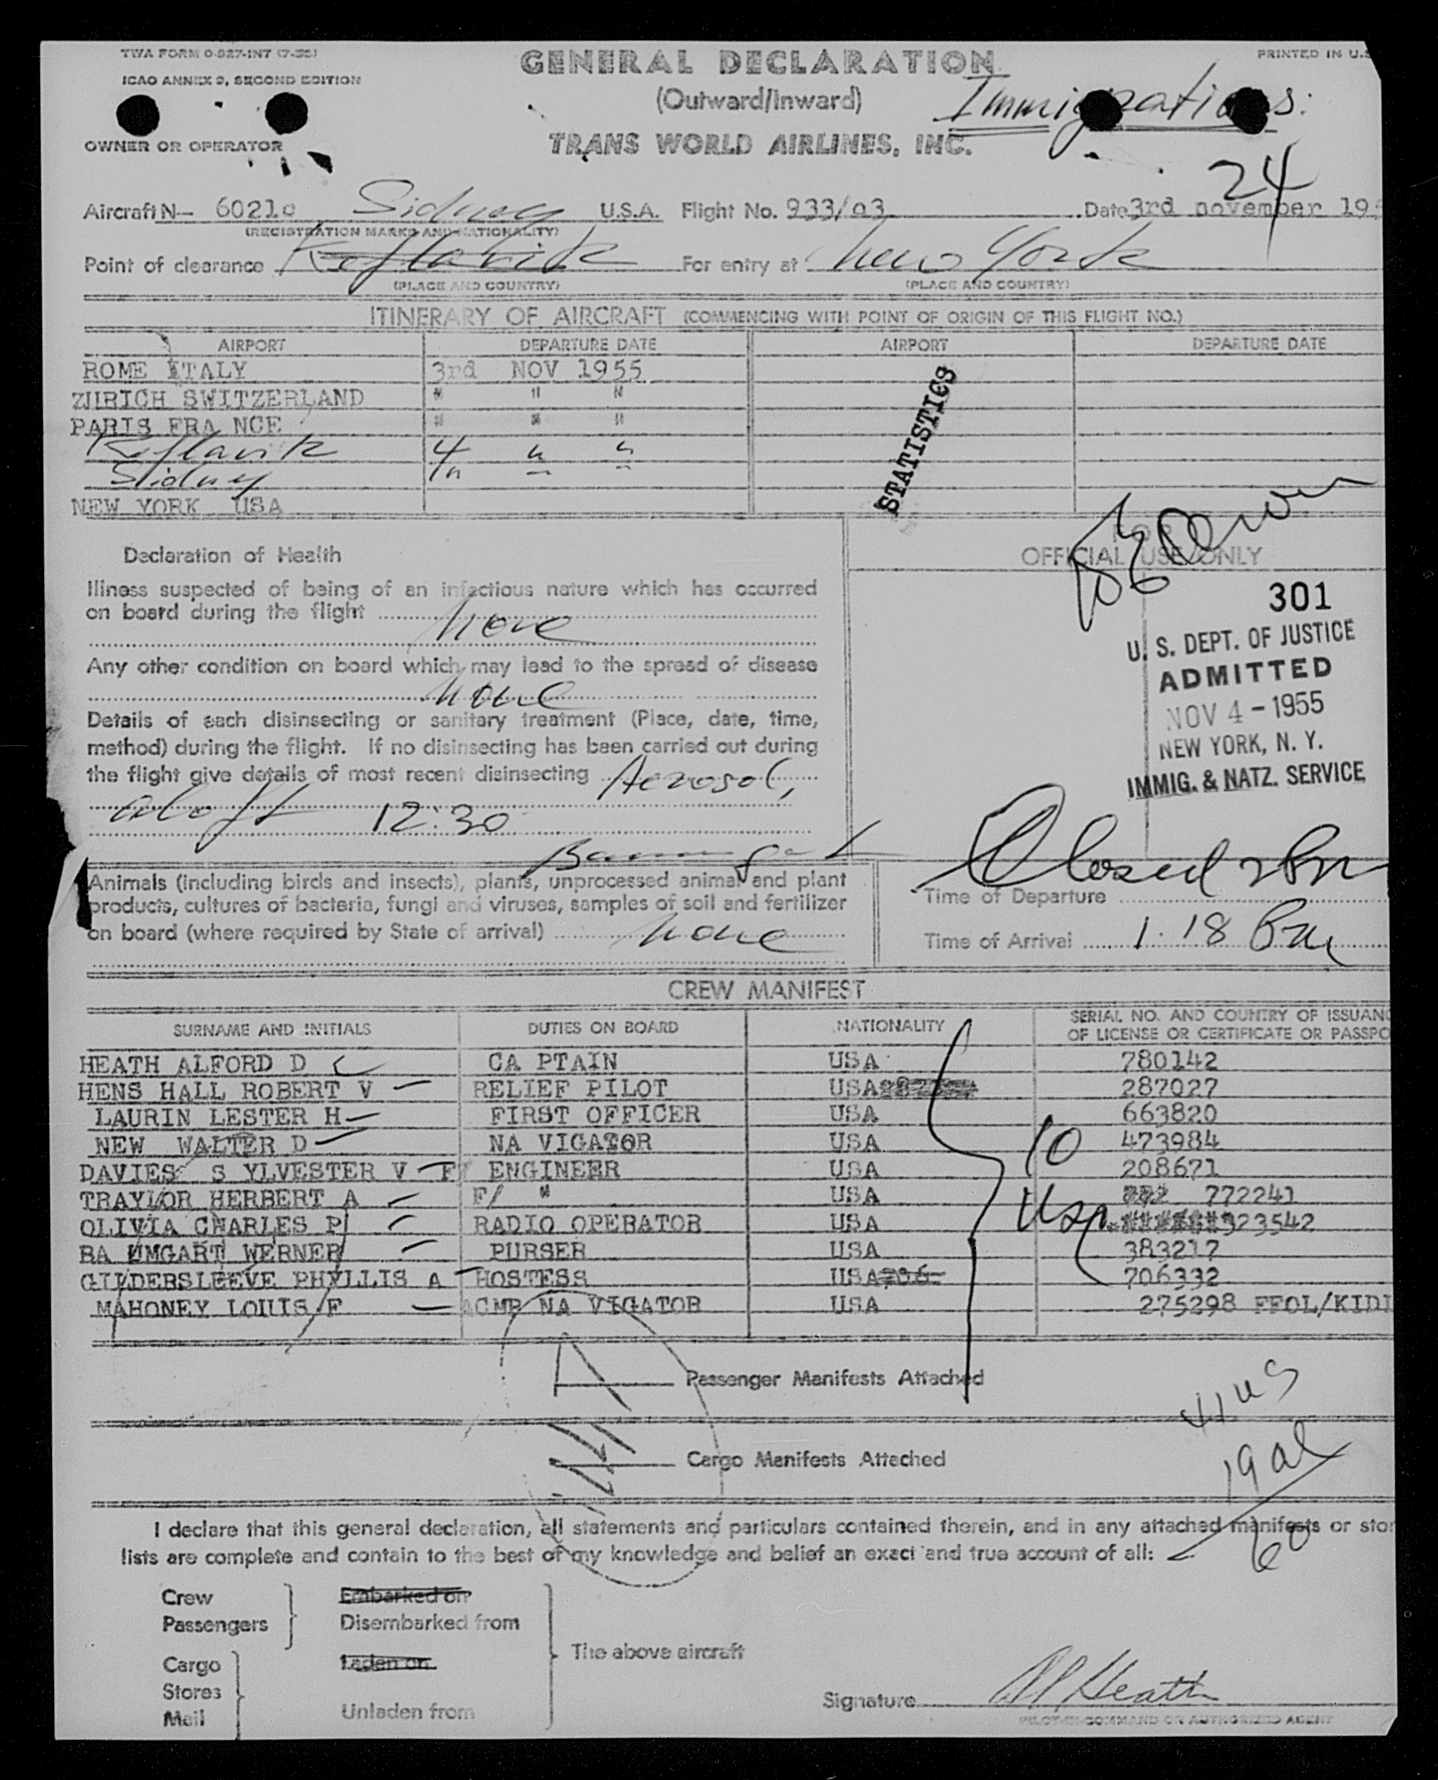 TWA FORM 0-927-INT (7-55)
ICAO ANNEX 9, SECOND EDITION
PRINTED IN U.S
GENERAL DECLARATION
(Outward/Inward)
TRANS WORLD AIRLINES, INC.
Immigrations:
24
OWNER OR OPERATOR
Aircraft N— 6021c Sidney U.S.A. Flight No. 933/03 Date 3rd november 195
(REGISTRATION MARKS AND NATIONALITY)
Point of clearance Keflavik For entry at New York
(PLACE AND COUNTRY) (PLACE AND COUNTRY)
ITINERARY OF AIRCRAFT (COMMENCING WITH POINT OF ORIGIN OF THIS FLIGHT NO.)
AIRPORT DEPARTURE DATE AIRPORT DEPARTURE DATE
ROME ITALY 3rd NOV 1955
ZURICH SWITZERLAND " " "
PARIS FRA NCE " " "
Keflavik 4 " "
Sidney " " "
NEW YORK USA
STATISTICS
Declaration of Health
FOR
OFFICIAL USE ONLY
Illness suspected of being of an infectious nature which has occurred
on board during the flight None
Any other condition on board which may lead to the spread of disease
None
Details of each disinsecting or sanitary treatment (Place, date, time,
method) during the flight. If no disinsecting has been carried out during
the flight give details of most recent disinsecting Aerosol,
aloft 12:30
Baumgart
301
U. S. DEPT. OF JUSTICE
ADMITTED
NOV 4 - 1955
NEW YORK, N. Y.
IMMIG. & NATZ. SERVICE
Animals (including birds and insects), plants, unprocessed animal and plant
products, cultures of bacteria, fungi and viruses, samples of soil and fertilizer
on board (where required by State of arrival) None
Closed 2 Pm
Time of Departure
Time of Arrival 1.18 Pm
CREW MANIFEST
SURNAME AND INITIALS DUTIES ON BOARD NATIONALITY SERIAL NO. AND COUNTRY OF ISSUANC
OF LICENSE OR CERTIFICATE OR PASSPO
HEATH ALFORD D CA PTAIN USA 780142
HENS HALL ROBERT V RELIEF PILOT USA 287027
LAURIN LESTER H FIRST OFFICER USA 663820
NEW WALTER D NA VIGATOR USA 473984
DAVIES S YLVESTER V F/ ENGINEER USA 208671
TRAYLOR HERBERT A F/ " USA 772241
OLIVIA CHARLES P RADIO OPERATOR USA 323542
BA UMGART WERNER PURSER USA 383217
GILDERSLEEVE PHYLLIS A HOSTESS USA 706332
MAHONEY LOUIS F ACMR NA VIGATOR USA 275298 FFOL/KIDL
10
Usa
Passenger Manifests Attached
41 US
Cargo Manifests Attached
19 al
60
I declare that this general declaration, all statements and particulars contained therein, and in any attached manifests or stor
lists are complete and contain to the best of my knowledge and belief an exact and true account of all:
Crew Embarked on
Passengers Disembarked from
The above aircraft
Cargo Laden on
Stores
Mail Unladen from
Signature AD Heath
PILOT-IN-COMMAND OR AUTHORIZED AGENT